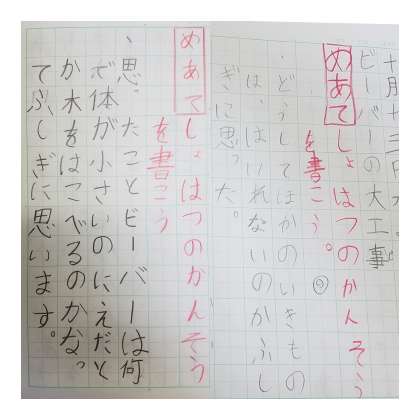 十月十三日
ビーバーの大工事
めあてしょはつのかんそう
を書こう。
・どうしてほかのいきもの
は、はいれないのかふし
ぎに思った。
めあてしょはつのかんそう
を書こう
・思ったことビーバーは何
で体が小さいのにえだと
か木をはこべるのかな。っ
てふしぎに思います。